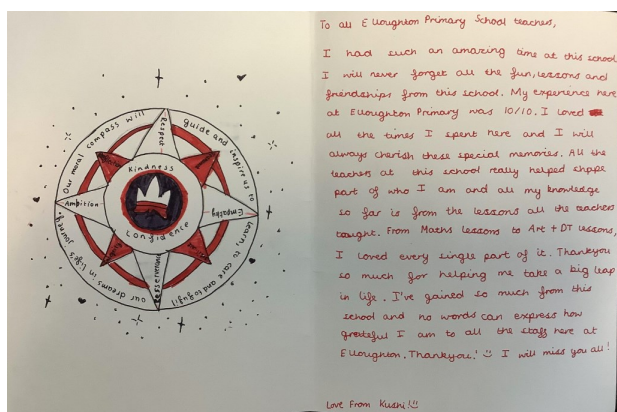 Our moral compass will guide and inspire us to learn, to care and to fulfil our dreams in life's journey
Respect
Kindness
Ambition
Empathy
Confidence
Perseverance
To all Elloughton Primary School teachers,
I had such an amazing time at this school
I will never forget all the fun, lessons and
friendships from this school. My experience here
at Elloughton Primary was 10/10. I loved
all the times I spent here and I will
always cherish these special memories. All the
teachers at this school really helped shape
part of who I am and all my knowledge
so far is from the lessons all the teachers
taught. From Maths lessons to Art + DT lessons,
I loved every single part of it. Thankyou
so much for helping me take a big leap
in life. I've gained so much from this
school and no words can express how
grateful I am to all the staff here at
Elloughton. Thankyou! I will miss you all!
Love From Kushi!